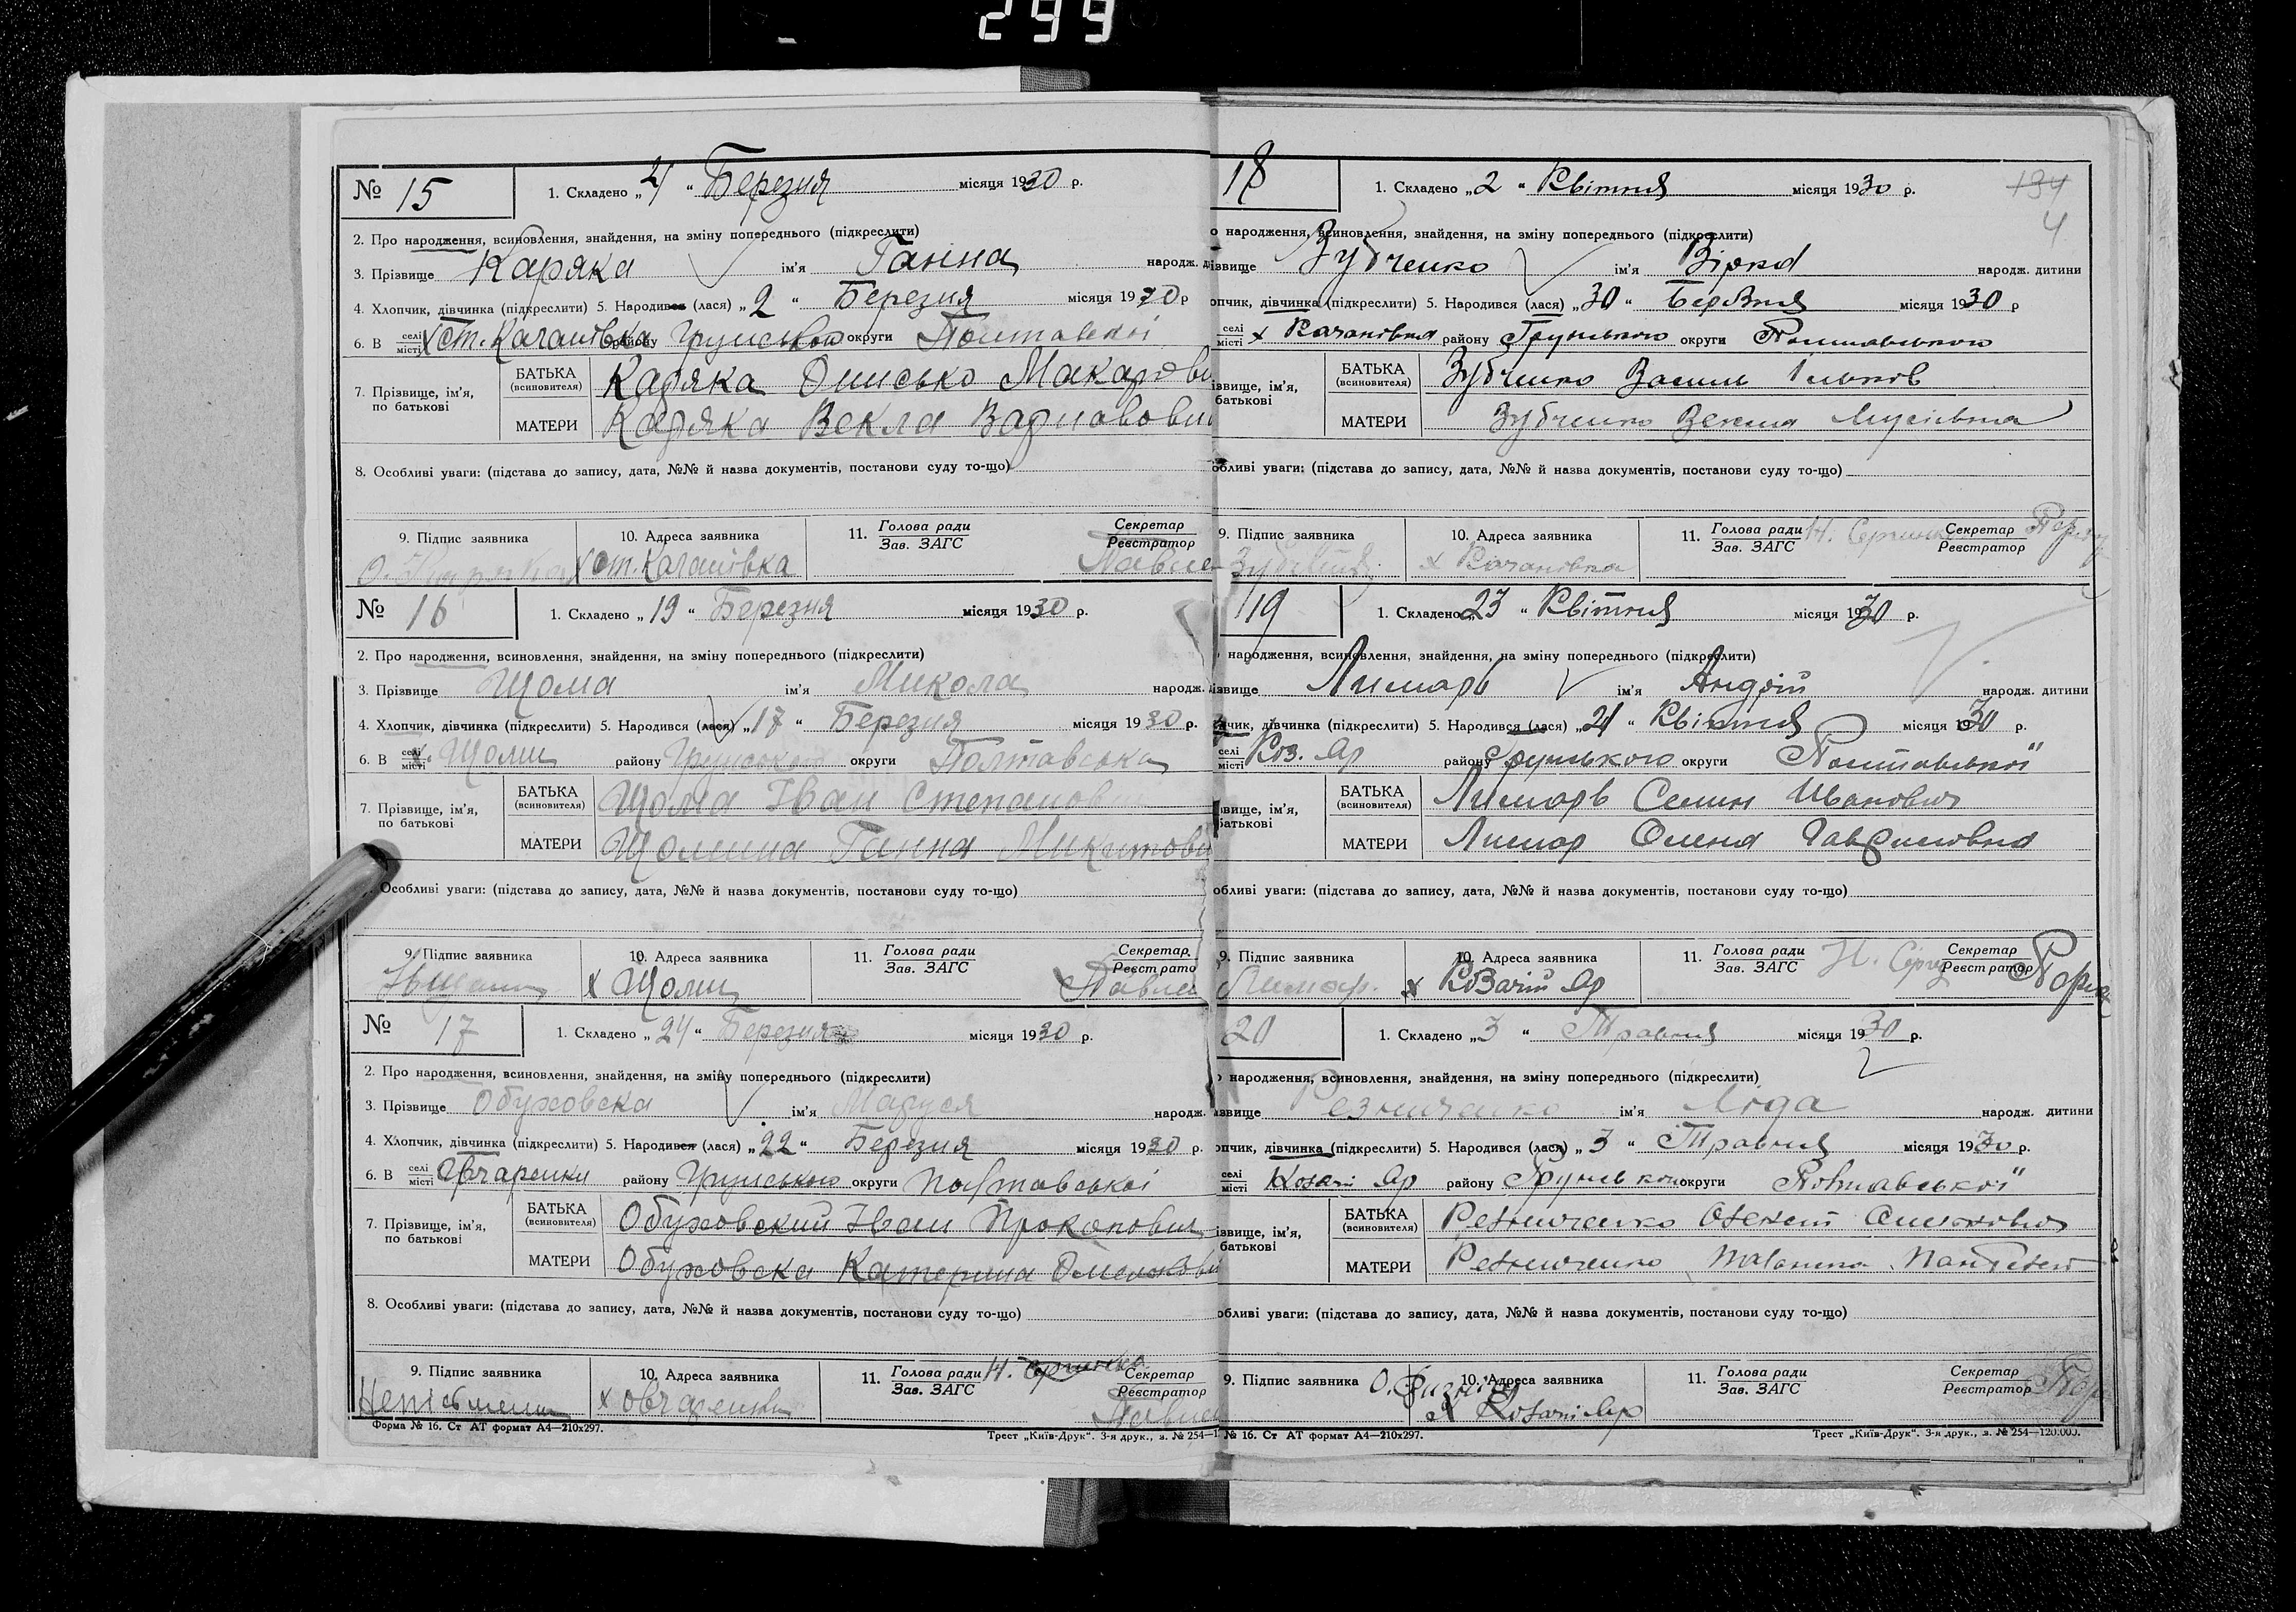 299
№ 15
1. Складено „4“ Березня місяця 1930 р.
2. Про народження, всиновлення, знайдення, на зміну попереднього (підкреслити)
3. Прізвище Каряка ім'я Ганна народж.
4. Хлопчик, дівчинка (підкреслити) 5. Народився (лася) „2“ Березня місяця 1930 р
6. В селі місті х ст. Качанівка району округи
7. Прізвище, ім'я, по батькові
БАТЬКА (всиновителя) Каряка Онисько Макарови
МАТЕРИ Каряка Векла
8. Особливі уваги: (підстава до запису, дата, №№ й назва документів, постанови суду то-що)
9. Підпис заявника 10. Адреса заявника 11. Голова ради Зав. ЗАГС Секретар Реєстратор
О. Каряка х ст. Качанівка
№ 16
1. Складено „19“ Березня місяця 1930 р.
2. Про народження, всиновлення, знайдення, на зміну попереднього (підкреслити)
3. Прізвище Щома ім'я Микола народж.
4. Хлопчик, дівчинка (підкреслити) 5. Народився (лася) „17“ Березня місяця 1930 р.
6. В селі місті х. Щоми району Грунського округи Полтавська
7. Прізвище, ім'я, по батькові
БАТЬКА (всиновителя) Щома Іван Степанов
МАТЕРИ Щомина Ганна Микитови
Особливі уваги: (підстава до запису, дата, №№ й назва документів, постанови суду то-що)
9. Підпис заявника 10. Адреса заявника 11. Голова ради Зав. ЗАГС Секретар Реєстрато
х Щоми
№ 17
1. Складено „24“ Березня місяця 1930 р.
2. Про народження, всиновлення, знайдення, на зміну попереднього (підкреслити)
3. Прізвище Обуховска ім'я Маруся народж.
4. Хлопчик, дівчинка (підкреслити) 5. Народився (лася) „22“ Березня місяця 1930 р.
6. В селі місті Овчаренки району Грунського округи Полтавської
7. Прізвище, ім'я, по батькові
БАТЬКА (всиновителя) Обуховский Іван Прокопович
МАТЕРИ Обуховска Катерина
8. Особливі уваги: (підстава до запису, дата, №№ й назва документів, постанови суду то-що)
9. Підпис заявника 10. Адреса заявника 11. Голова ради Зав. ЗАГС Секретар Реєстратор
х Овчаренки
Форма № 16. Ст АТ формат А4—210х297. Трест „Київ-Друк“. 3-я друк., з. № 254—1
18
1. Складено „2“ Квітня місяця 1930 р.
134
4
о народження, всиновлення, знайдення, на зміну попереднього (підкреслити)
ізвище Зубченко ім'я Вірка народж. дитини
опчик, дівчинка (підкреслити) 5. Народився (лася) „30“ Березня місяця 1930 р
селі місті х Качанівка району Грунського округи
ізвище, ім'я, батькові
БАТЬКА (всиновителя) Зубченко Василь Ільков
МАТЕРИ Зубченко Векла Мусіївна
обливі уваги: (підстава до запису, дата, №№ й назва документів, постанови суду то-що)
9. Підпис заявника 10. Адреса заявника 11. Голова ради Зав. ЗАГС Секретар Реєстратор
х Качановка
19
1. Складено „23“ Квітня місяця 1930 р.
народження, всиновлення, знайдення, на зміну попереднього (підкреслити)
ізвище Лимарь ім'я Андрій народж. дитини
чик, дівчинка (підкреслити) 5. Народився (лася) „21“ Квітня місяця 1930 р.
селі місті Коз. Яр району Грунського округи Полтавської
ізвище, ім'я, батькові
БАТЬКА (всиновителя) Лимарь Семен Иванович
МАТЕРИ Лимар Олена Гавриловна
обливі уваги: (підстава до запису, дата, №№ й назва документів, постанови суду то-що)
9. Підпис заявника 10. Адреса заявника 11. Голова ради Зав. ЗАГС Секретар Реєстратор
Лимар. х Козачий Яр
20
1. Складено „3“ Травня місяця 1930 р.
народження, всиновлення, знайдення, на зміну попереднього (підкреслити)
ізвище Резниченко ім'я Ліда народж. дитини
опчик, дівчинка (підкреслити) 5. Народився (лася) „3“ Травня місяця 1930 р.
селі місті Козачi Яр району Грунського округи Полтавської
ізвище, ім'я, батькові
БАТЬКА (всиновителя) Резниченко
МАТЕРИ Резниченко
обливі уваги: (підстава до запису, дата, №№ й назва документів, постанови суду то-що)
9. Підпис заявника 10. Адреса заявника 11. Голова ради Зав. ЗАГС Секретар Реєстратор
№ 16. Ст АТ формат А4—210х297. Трест „Київ-Друк“. 3-я друк., з. № 254—120.000.